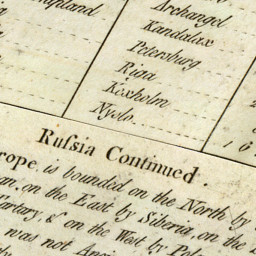 Archangel
Kandalax
Petersburg
Riga
Kexholm
Nyslo
Rufsia Continued.
rope is bounded on the North by
on the East by Siberia, on the
Tartary, & on the West by
was not